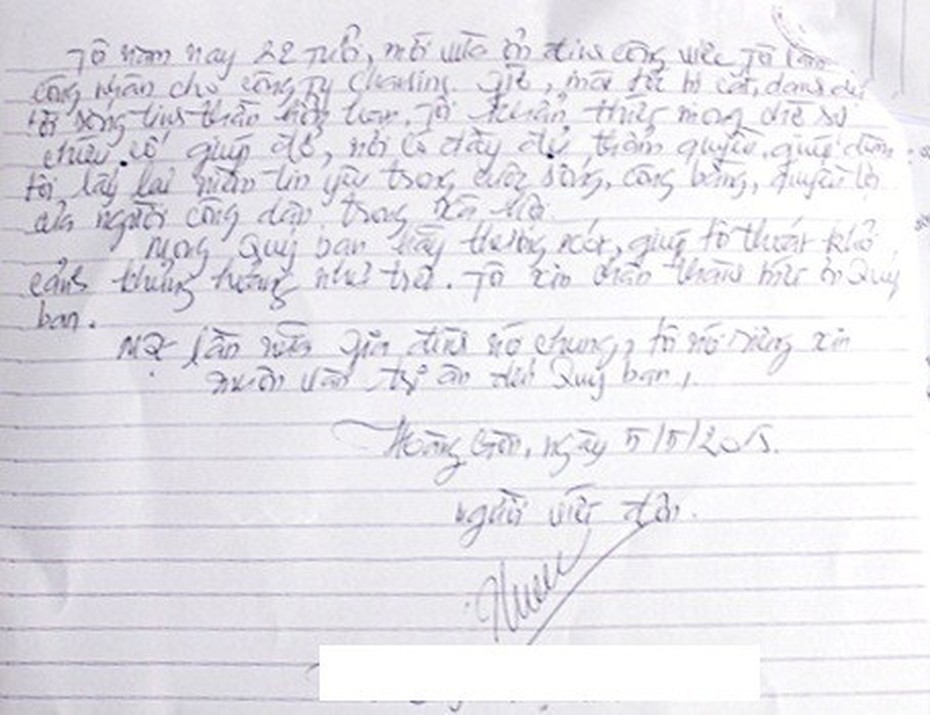 Tôi năm nay 22 tuổi, mới vừa ổn định công việc Tôi làm
công nhân cho công ty
tôi sống tinh thần Tôi khẩn thiết mong chờ sự
chiếu cố giúp đỡ, nơi có đầy đủ thẩm quyền, giúp
tôi lấy lại niềm tin yêu trong cuộc sống, công bằng, quyền lợi
của người công dân trong xã hội.
Mong Quý ban hãy thương xót, giúp tôi thoát khỏi
cảnh khủng hoảng như trên. Tôi xin chân thành biết ơn Quý
ban.
Một lần nữa gia đình nói chung, tôi nói riêng xin
muôn vàn tri ân đến Quý ban,
ngày 5/5/2015.
người viết đơn.